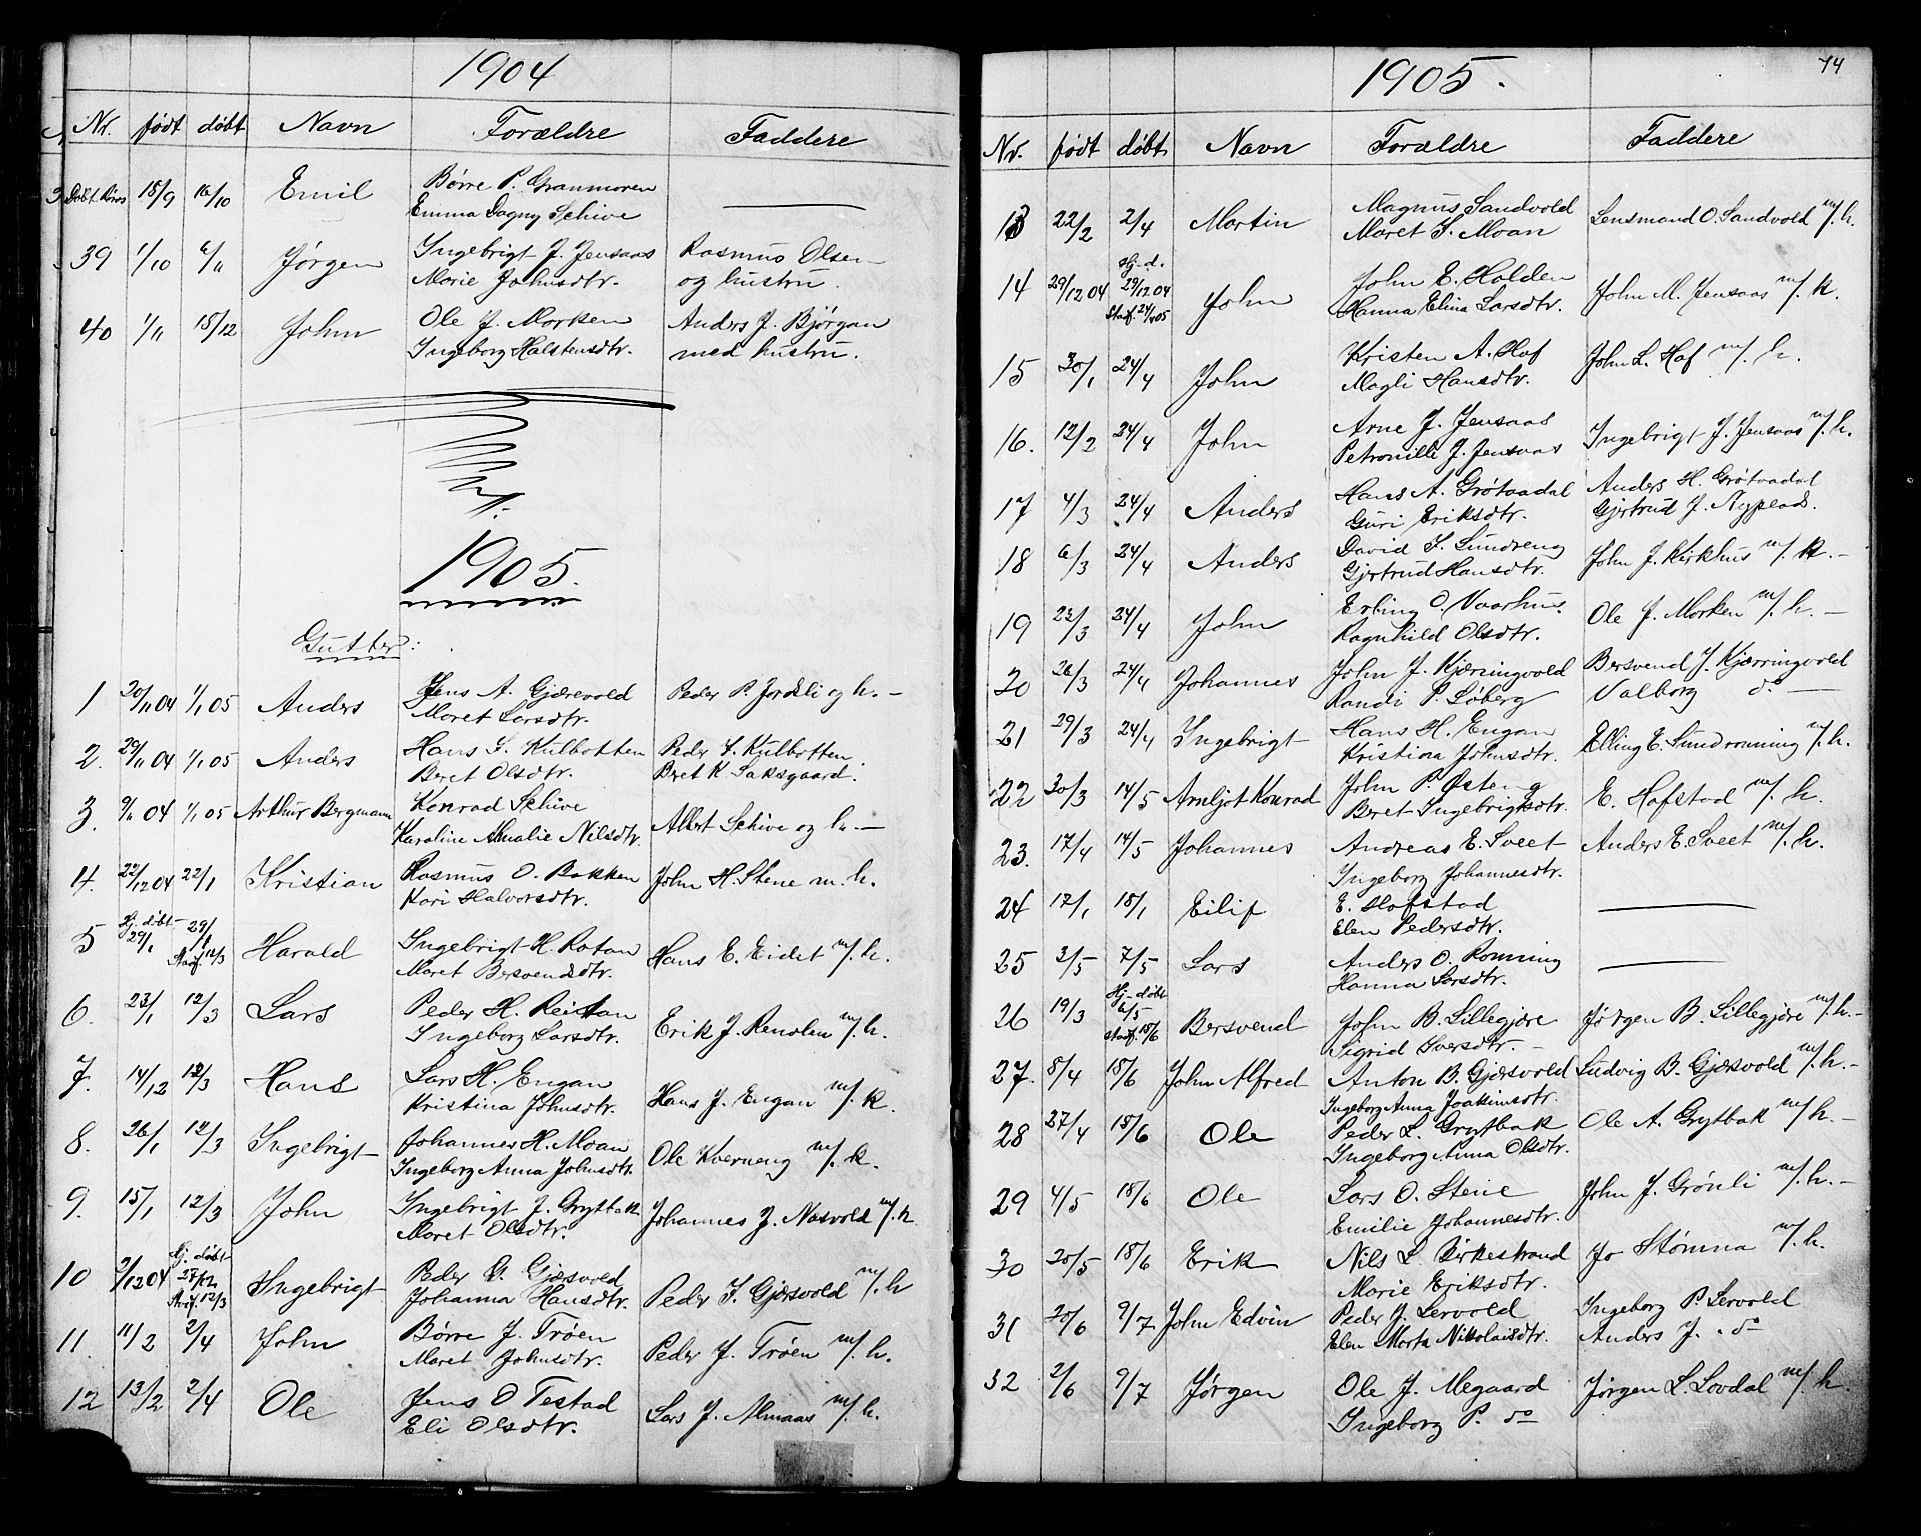 1904
Nr. født døbt Navn Forældre Faddere
Døbt Röros 18/9 16/10 Emil Børre P. Granmoren
Emma Dagny Schive
39 1/10 6/11 Jørgen Ingebrigt J. Jensaas Rasmus Olsen
Marie Johnsdtr. og hustru.
40 1/11 18/12 John Ole J. Morken Anders J. Bjørgan
Ingeborg Halstensdtr. med hustru.
1905.
Gutter:
1 20/11 04 1/1 05 Anders Jens A. Gjærevold Peder P. Jordeli og h. –
Maret Larsdtr.
2. 29/11 04 1/1 05 Anders Hans S. Kulbotten Peder S. Kulbotten.
Beret Olsdtr. Beret K. Saksgaard.
3. 9/11 04 1/1 05 Arthur Bergmann Konrad Schive
Karoline Amalie Nilsdtr. Albert Schive og h. –
4. 22/12 04 22/1 Kristian Rasmus O. Bakken John H. Stene m. h.
Kari Halvorsdtr.
5 Hj. døbt 29/1 29/1 Stadf. 12/3 Harald Ingebrigt H. Rotan Hans E. Eidet m/. h.
Maret Bersvendsdtr.
6. 23/1 12/3 Lars Peder H. Reitan Erik J. Renolen m/. h.
Ingeborg Larsdtr.
7. 14/12 12/3 Hans Lars H. Engan Hans J. Engan m/. k.
Kristina Johnsdtr.
8. 26/1 12/3 Ingebrigt Johannes H. Moan Ole Kverneng m/. k.
Ingeborg Anna Johnsdtr.
9. 15/1 12/3 John Ingebrigt J. Grytbak Johannes J. Nasvold m/. k
Maret Olsdtr.
10 2/12 04 Hj. døbt 27/12 Stadf. 12/3 Ingebrigt Peder G. Gjæsvold Peder I. Gjæsvold m/. h
Johanna Hansdtr.
11. 11/2 2/4 John Børre J. Trøen Peder J. Trøen m/. h.
Maret Johnsdtr.
12 13/2 2/4 Ole Jens O Testad Lars J. Almaas m/. h.
Eli Olsdtr.
1905. 74
Nr. født døbt Navn Forældre Faddere
13 22/2 2/4 Martin Magnus Sandvold Lensmand O. Sandvold m/. h.
Maret S. Moan
14 29/12 04 Hj-d. 29/12 04 Stadf. 24/4 05 John John E. Holden John M. Jensaas m/. k.
Hanna Elina Larsdtr.
15 30/1 24/4 John Kristen A. Hof John L. Hof m/. h.
Magli Hansdtr.
16. 12/2 24/4 John Arne J. Jensaas Ingebrigt J. Jensaas m/. h.
Petronille J. Jensaas
17 4/3 24/4 Anders Hans A. Grøtaadal Anders H. Grøtaadal
Guri Eriksdtr. Gjertrud J. Nyplads.
18 6/3 24/4 Anders David S. Sundseng John J. Kirkhus m/. k. –
Gjertrud Hansdtr.
19 23/3 24/4 John Erling O. Vaarhus Ole J. Morken m/. h. –
Ragnhild Olsdtr.
20 26/3 24/4 Johannes John J. Kjærringvold Bersvend J. Kjærringvold
Randi P. Løberg Valborg do –
21 29/3 24/4 Ingebrigt Hans H. Engan Elling E. Sundrønning m/. h.
Kristina Johnsdtr.
22 30/3 14/5 Arnljot Konrad John P. Østeng E. Hofstad m/. h.
Beret Ingebrigtsdtr.
23. 17/4 14/5 Johannes Andreas E. Sveet Anders E. Sveet m/. h.
Ingeborg Johannesdtr.
24 17/1 18/1 Eilif E. Hofstad
Elen Pedersdtr.
25 3/5 7/5 Lars Anders O. Rønning
Hanna Larsdtr.
26 19/3 Hj-døbt 6/5 Stadf. 18/6 Bersvend John B. Lillegjøre Jørgen B. Lillegjøre m/. h. –
Sigrid Iversdtr. –
27. 8/4 18/6 John Alfred Anton B. Gjæsvold Ludvig B. Gjæsvold m/. h. –
Ingeborg Anna Joakimsdtr.
28 27/4 18/6 Ole Peder L. Grytbak Ole A. Grytbak m/ h. –
Ingeborg Anna Olsdtr.
29 4/5 18/6 Ole Lars O. Stene John J. Grønli m/. h. –
Emilie Johannesdtr.
30 20/5 18/6 Erik Nils L. Birkestrand Jo Stømna m/. h.
Marie Eriksdtr.
31 20/6 9/7 John Edvin Peder J. Lervold Ingeborg P. Lervold
Elen Marta Nikolaisdtr. Anders J. do
32 2/6 9/7 Jørgen Ole J. Aegaard Jørgen L. Lovdal m/. h.
Ingeborg P. do